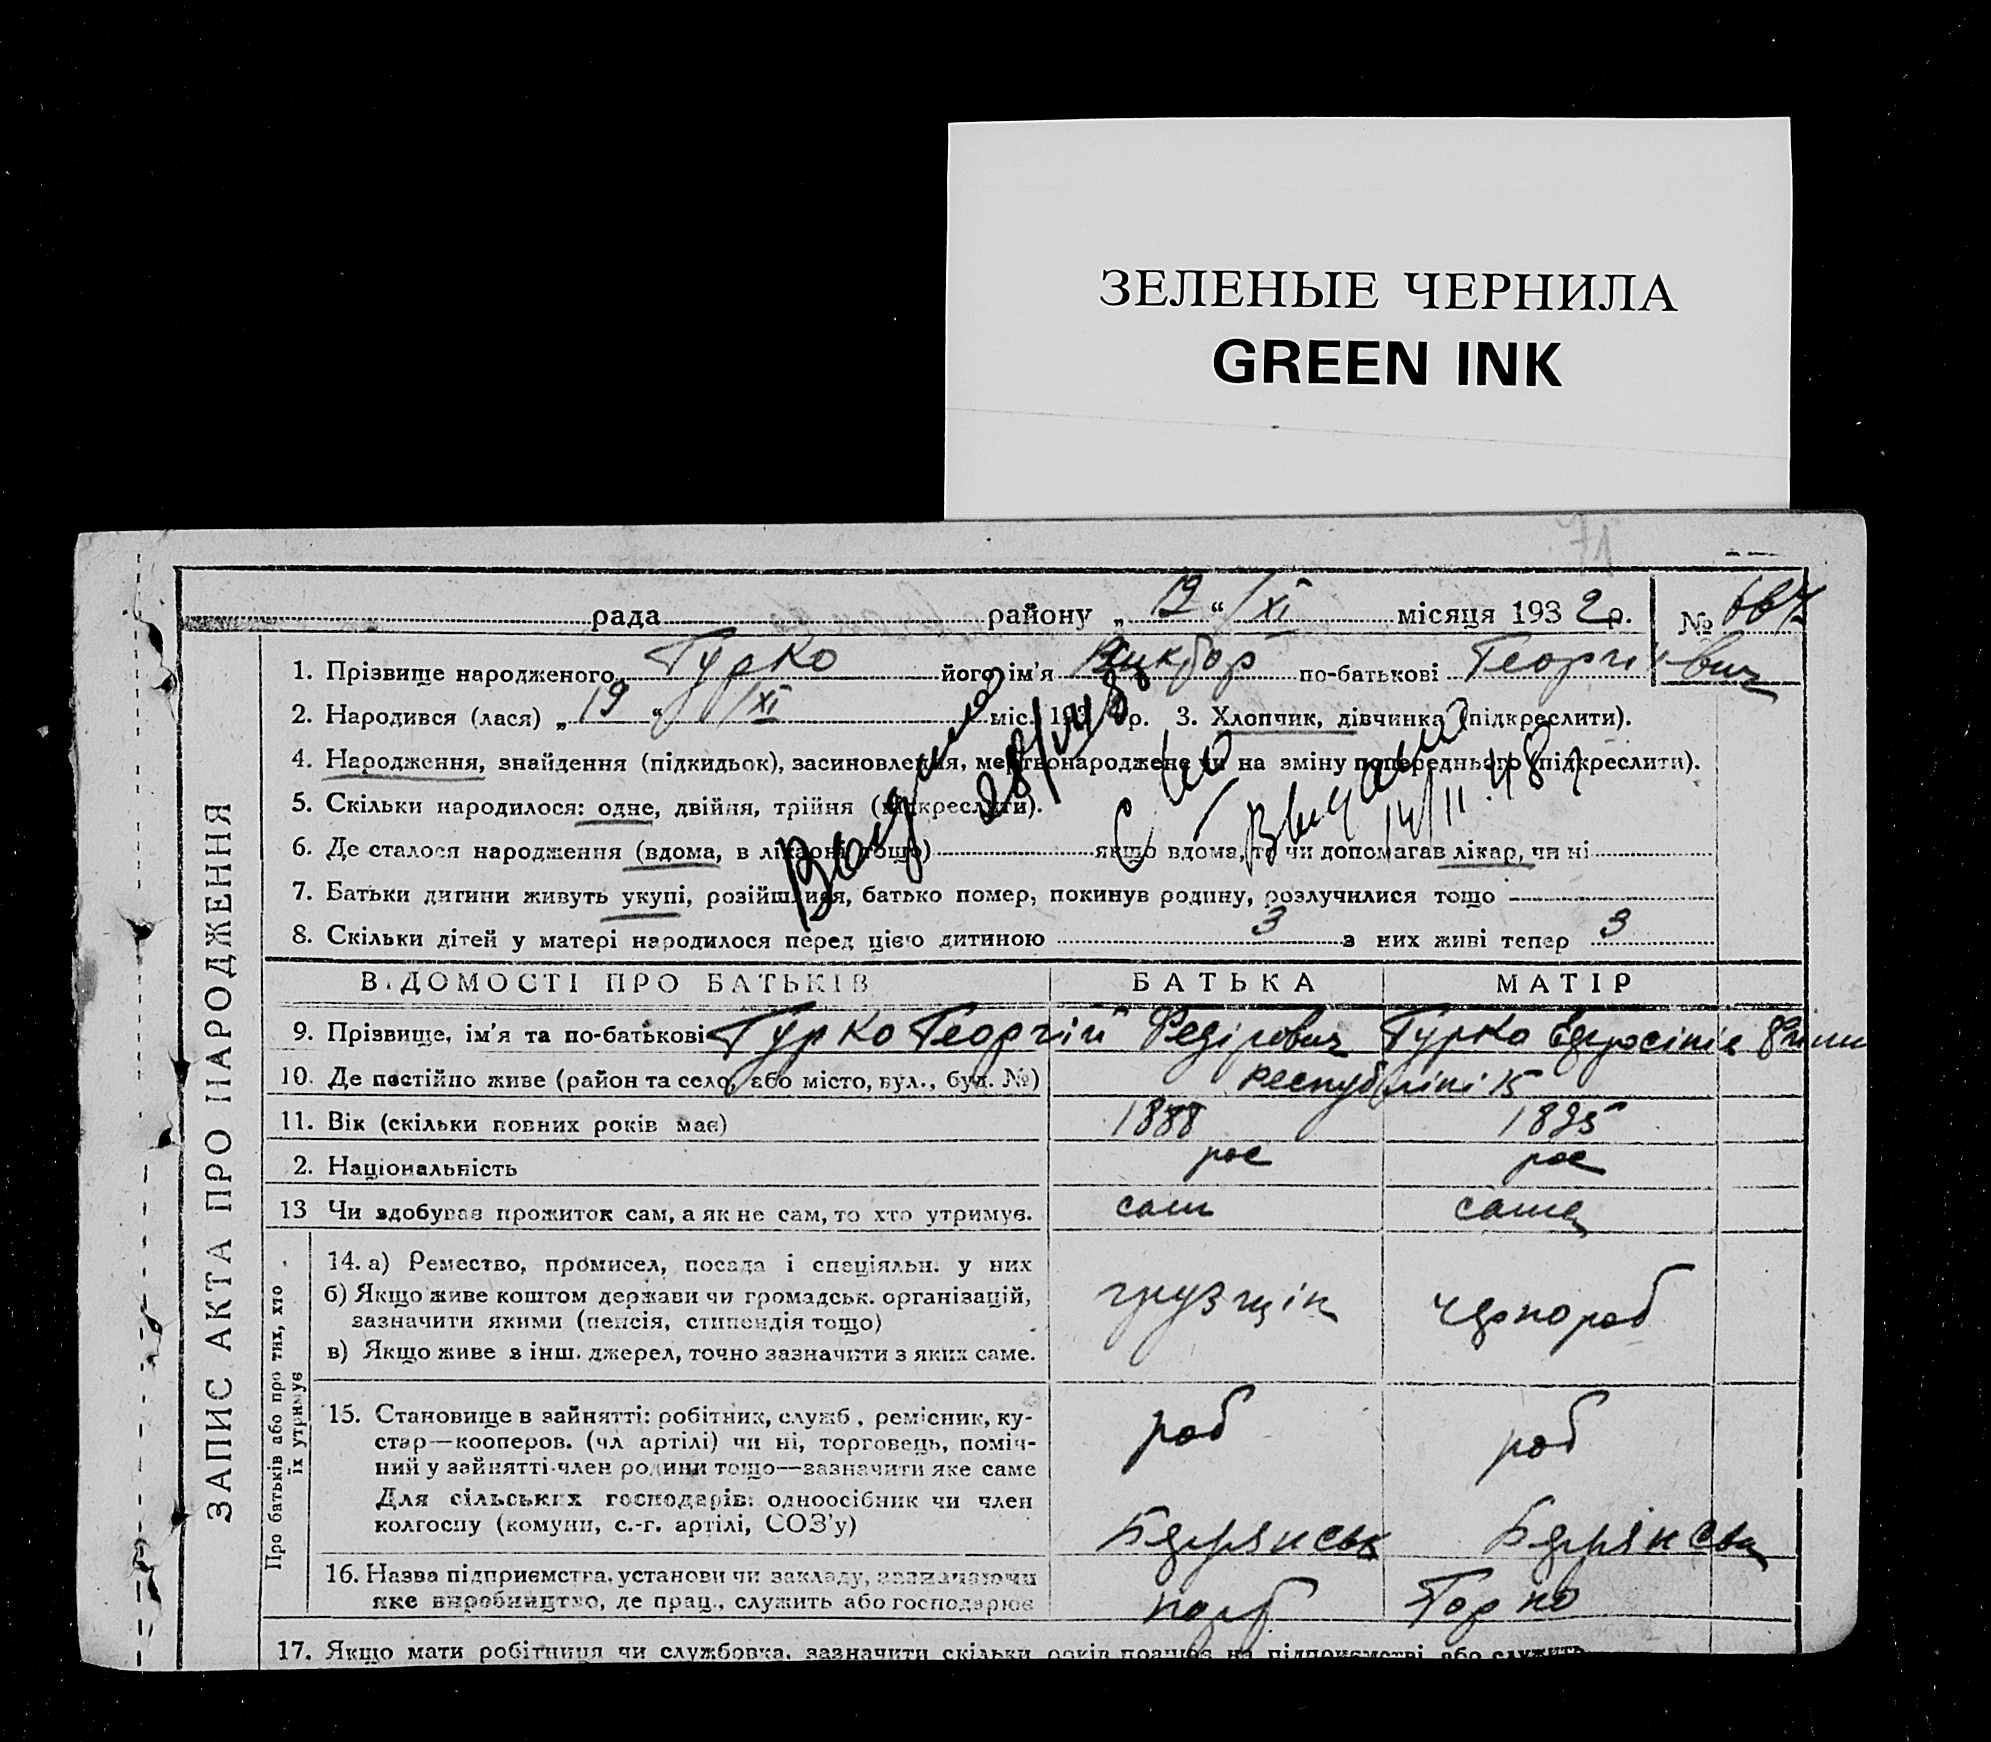 ЗЕЛЕНЫЕ ЧЕРНИЛА
GREEN INK
71
рада району „ 19 “ XI місяця 1932 р. №
1. Прізвище народженого Гурко його ім'я Віктор по-батькові Георгієвич
2. Народився (лася) „ 19 “ XI міс. 193 р. 3. Хлопчик, дівчинка (підкреслити).
4. Народження, знайдення (підкидьок), засиновлення, мертвонароджене чи на зміну попереднього (підкреслити).
5. Скільки народилося: одне, двійня, трійня (підкреслити).
6. Де сталося народження (вдома, в лікарні тощо) якщо вдома, то чи допомагав лікар, чи ні
7. Батьки дитини живуть укупі, розійшлися, батько помер, покинув родину, розлучилися тощо
8. Скільки дітей у матері народилося перед цією дитиною 3 з них живі тепер 3
ВІДОМОСТІ ПРО БАТЬКІВ БАТЬКА МАТІР
9. Прізвище, ім'я та по-батькові Гурко Георгій Федірович Гурко
10. Де постійно живе (район та село, або місто, вул., буд. №) республіки 15
11. Вік (скільки повних років має) 1888 1895
2. Національність рос рос
13 Чи здобував прожиток сам, а як не сам, то хто утримує. сам сама
14. а) Ремество, промисел, посада і спеціяльн. у них
б) Якщо живе коштом держави чи громадськ. організацій,
зазначити якими (пенсія, стипендія тощо)
в) Якщо живе з інш. джерел, точно зазначити з яких саме.
грузщік чорнороб
15. Становище в зайнятті: робітник, служб., ремісник, ку-
стар—кооперов. (чл артілі) чи ні, торговець, поміч-
ний у зайнятті член родини тощо—зазначити яке саме
Для сільських господарів: одноосібник чи член
колгоспу (комуни, с.-г. артілі, СОЗ'у)
роб роб
16. Назва підприємства, установи чи закладу, зазначаючи
яке виробництво, де прац., служить або господарює
Бердянськ Бердянськ
порт
17. Якщо мати робітниця чи службовка, зазначити скільки років працює на підприємстві або служить
ЗАПИС АКТА ПРО НАРОДЖЕННЯ
Про батьків або про тих, хто
їх утримує
Выдано
14/II.48